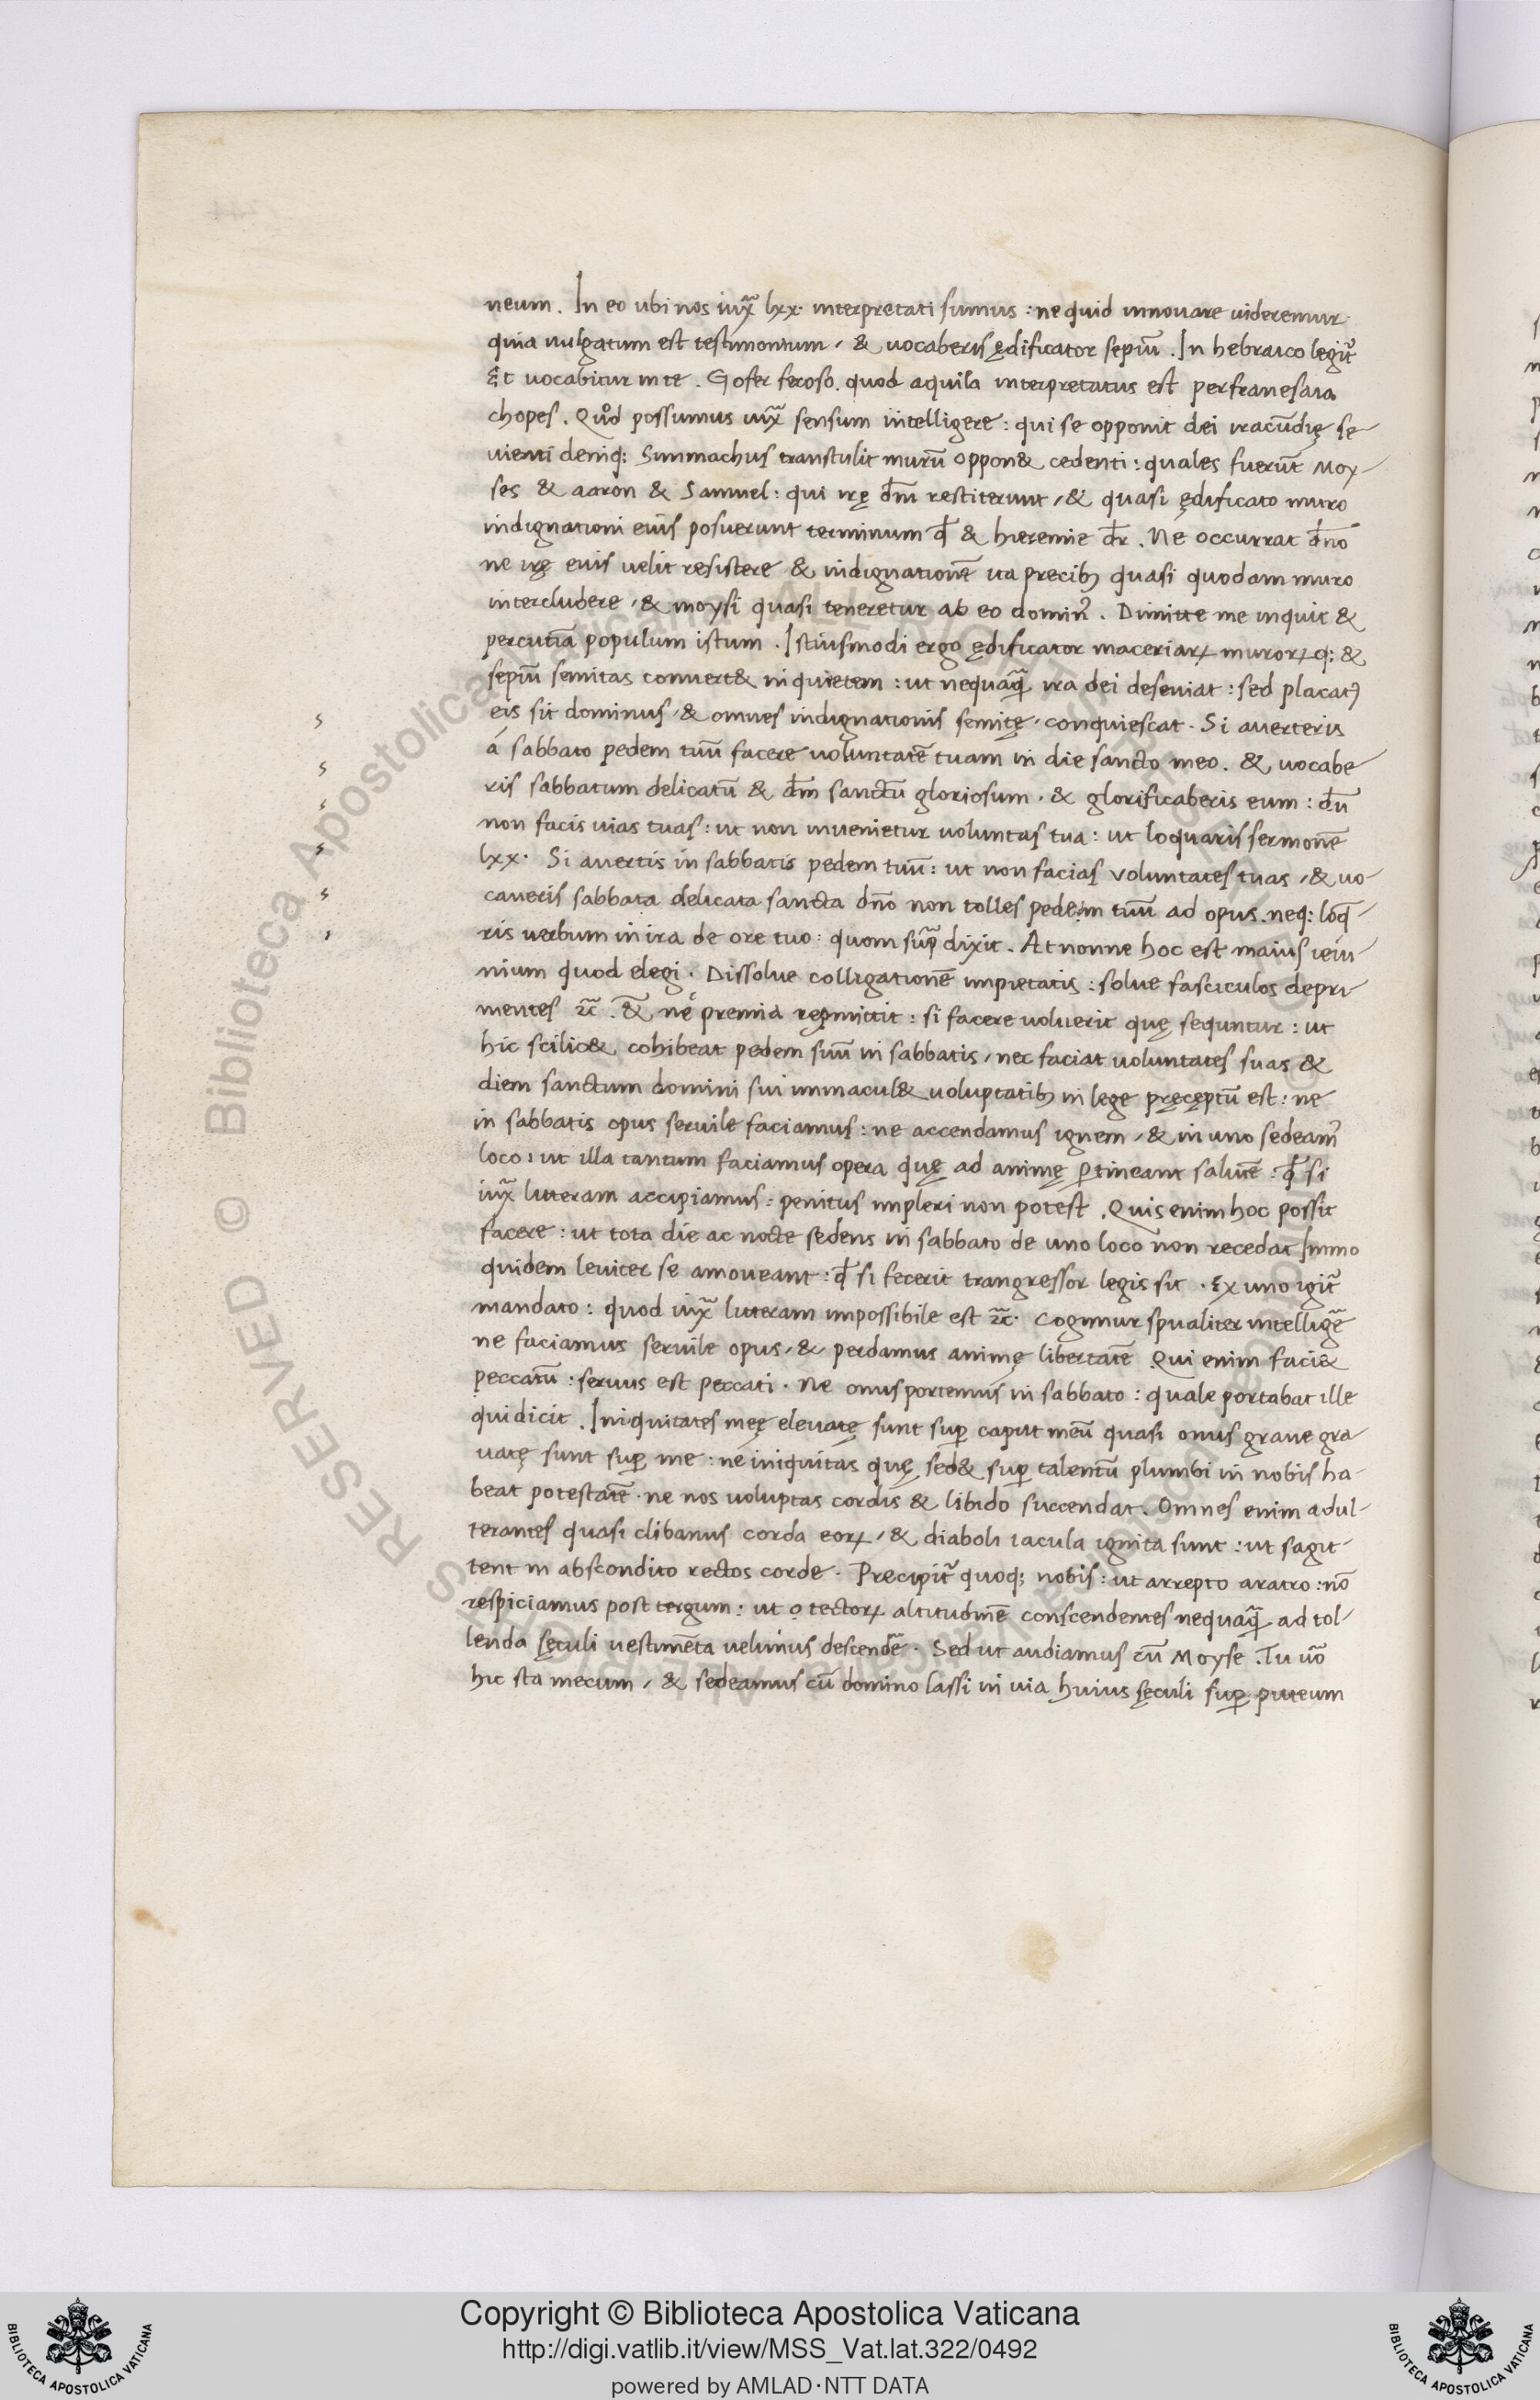 neum. In eo ubi nos iux̃ lxx. interpretati sumus: ne quid innouare uideremur
quia uulgatum est testimonium, & uocaberis ędificator sepiũ. In hebraico legit᷑
Et uocabitur in te. Gofer feroso. quod aquila interpretatus est perfranesaia
chopes. Quod possumus iux̃ sensum intelligere: qui se opponit dei iracũdię se-
uienti deniq; Simmachus transtulit murũ oppon& cedenti: quales fuerũt Moy-
ses & aaron & Samuel: qui irę dm̃ restiterunt, & quasi ędificato muro
indignationi eius posuerunt terminum qđ & hieremie dr̃. Ne occurrat dño
ne irę eius uelit resistere & indignationẽ ita precib; quasi quodam muro
intercludere, & moysi quasi teneretur ab eo domin᷒. Dimitte me inquit &
percutiã populum istum. Istiusmodi ergo ędificator maceriaꝝ muroꝝq; &
sepiũ semitas conuert& in quietem: ut nequaq̃ ira dei deseuiat: sed placat᷒
eis sit dominus, & omnes indignationis semitę, conquiescat. Si auerteris
á sabbato pedem tuũ facere uoluntatẽ tuam in die sancto meo. & uocabe-
ris sabbatum delicatũ & dm̃ sanctũ gloriosum. & glorificaberis eum: dũ
non facis uias tuas: ut non inuenietur uoluntas tua: ut loquaris sermonẽ
lxx. Si auertis in sabbatis pedem tuũ: ut non facias voluntates tuas, & uo-
caueris sabbata delicata sancta dño non tolles pedem tuũ ad opus. neq; loq̃-
ris uerbum in ira de ore tuo: quom sup̃ dixit. At nonne hoc est maius ieiu-
nium quod elegi. Dissolue colligationẽ impietatis: solue fasciculos depri-
mentes &c̃. & nẽ premia repmittit: si facere uoluerit quę sequntur: ut
hic scilic& cohibeat pedem suũ in sabbatis, nec faciat uoluntates suas &
diem sanctum domini sui inmacul& uoluptatib; in lege pręcęptũ est: ne
in sabbatis opus seruile faciamus: ne accendamus ignem, & in uno sedeam᷒
loco: ut illa tantum faciamus opera quę ad animę ꝑtineant salutẽ: qđ si
iux̃ litteram accipiamus: penitus impleri non potest. Quis enim hoc possit
facere: ut tota die ac nocte sedens in sabbato de uno loco non recedat Immo
quidem leuiter se amoueant: qđ si fecerit trangressor legis sit. Ex uno igit᷑
mandato: quod iux̃ litteram impossibile est &c̃. Cogimur spualiter intelligẽ
ne faciamus seruile opus, & perdamus animę libertatẽ Qui enim faci&
peccatũ: seruus est peccati. Ne onus portemus in sabbato: quale portabat ille
qui dicit. Iniquitates meę eleuatę sunt suꝑ caput meũ quasi onus graue gra-
uatę sunt suꝑ me: ne iniquitas quę sed& suꝑ talentũ plumbi in nobis ha-
beat potestatẽ. ne nos uoluptas cordis & libido succendat. Omnes enim adul-
terantes quasi clibanus corda eoꝝ, & diaboli iacula ignita sunt: ut sagit-
tent in abscondito rectos corde. Precipit᷑ quoq; nobis: ut arrepto aratro: nõ
respiciamus post tergum: ut o tectoꝝ altitudinẽ conscendentes nequaq̃ ad tol-
lenda sęculi uestimẽta uelimus descendẽ. Sed ut audiamus cũ Moyse. Tu uõ
hic sta mecum, & sedeamus cũ domino lassi in uia huius sęculi suꝑ puteum
Biblioteca Apostolica Vaticana
ALL RIGHTS RESERVED ©
Copyright © Biblioteca Apostolica Vaticana
http://digi.vatlib.it/view/MSS_Vat.lat.322/0492
powered by AMLAD·NTT DATA
BIBLIOTECA APOSTOLICA VATICANA
BIBLIOTECA APOSTOLICA VATICANA